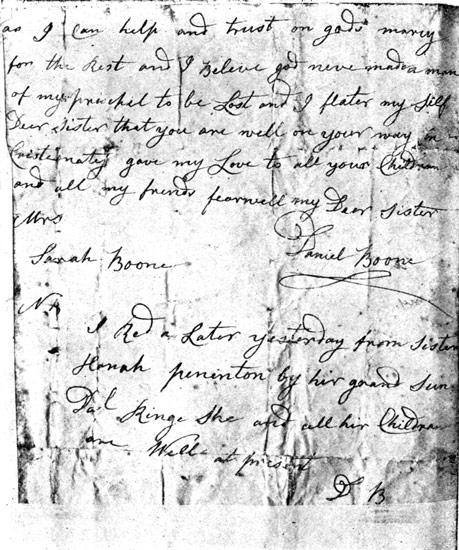 as I can help and trust on gods marcy
for the Rest and I Beleve god neve made a man
of my prisepel to be Lost and I flater my Silf
Dear Sister that you are well on your way in
Cristianaty gave my Love to all your Childran
and all my frends fearwell my Dear Sister
Mrs
Sarah Boone
Daniel Boone
NB
I Red a Later yesterday from Sister
Hanah peninton by hir grand Sun
Dal Ringe She and all hir Childran
are Well at present
D B